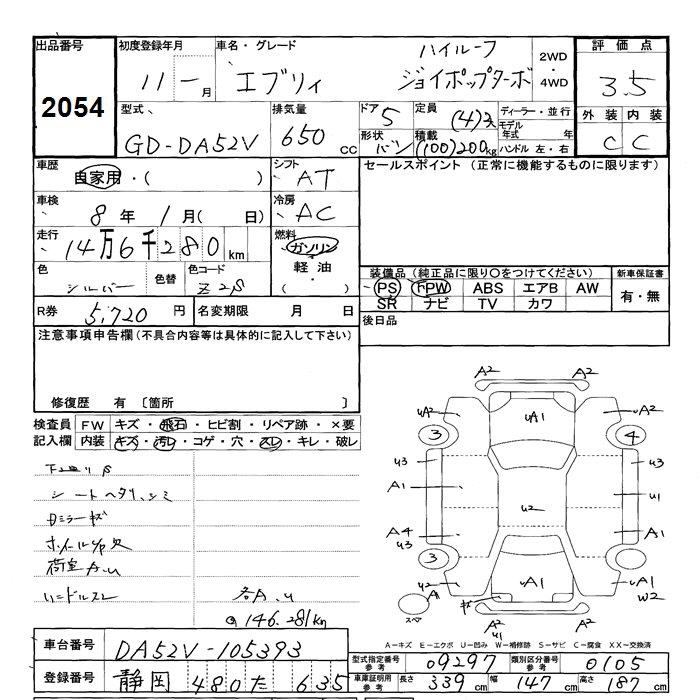 出品番号 初度登録年月 車名・グレード ハイルーフ 2WD・4WD 評価点
2054 11 - 月 エブリィ ジョイポップターボ 3.5
型式 排気量 ドア 5 定員 (4) ディーラー・並行 外装 内装
GD-DA52V 650 CC 形状 バン 積載 (100)200kg モデル年式 年 ハンドル 左・右 C C
車歴 自家用・( ) シフト AT セールスポイント (正常に機能するものに限ります)
車検 8年 1月( 日) 冷房 AC
走行 14万6千280km 燃料 ガソリン・軽油・( )
色 シルバー 色替 色コード Z2S 装備品 (純正品に限り○をつけてください) 新車保証書
PS PW ABS エアB AW 有・無
SR ナビ TV カワ
R券 5,720円 名変期限 月 日 後日品
注意事項申告欄(不具合内容等は具体的に記入して下さい)
修復歴 有 〔箇所 〕
検査員 FW キズ・飛石・ヒビ割・リペア跡・×要
記入欄 内装 キズ・汚レ・コゲ・穴・スレ・キレ・破レ
シートヘタリ、シミ
荷室A.U
ハンドルスレ 各A.U
146.281km
A2
uA2 uA1 A2
3 4
u3 u3
A1 u2 u1
A4 A1
u3
3
u2 A1 uA1
A1 W2
スペア A2
u1
A2
A=キズ E=エクボ U=凹み W=補修跡 S=サビ C=腐食 XX=交換済
車台番号 DA52V-105393
型式指定番号 参考 09297 類別区分番号 参考 0105
登録番号 静岡 480 た 635
車庫証明用 参考 長さ 339cm 幅 147cm 高さ 187cm